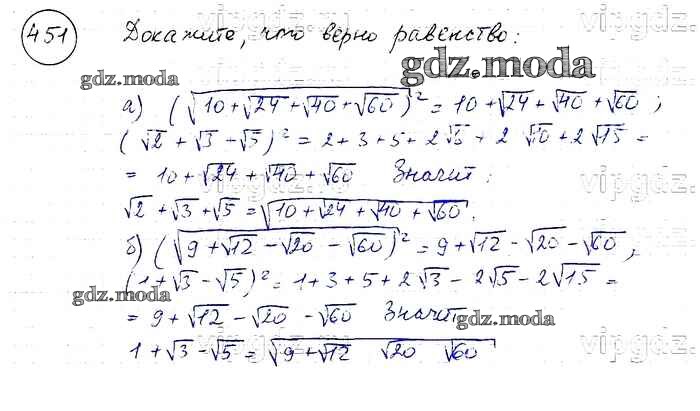 451 Докажите, что верно равенство:
gdz.moda
gdz.moda
а) (√(10+√24+√40+√60))² = 10+√24+√40+√60;
(√2+√3+√5)² = 2+3+5+2√6+2√10+2√15=
= 10+√24+√40+√60 Значит:
√2+√3+√5=√(10+√24+√40+√60).
б) (√(9+√12-√20-√60))² = 9+√12-√20-√60,
(1+√3-√5)² = 1+3+5+2√3-2√5-2√15=
gdz.moda
= 9+√12-√20-√60 Значит
gdz.moda
1+√3-√5=√(9+√12 √20 √60)
vipgdz
vipgdz
vipgdz